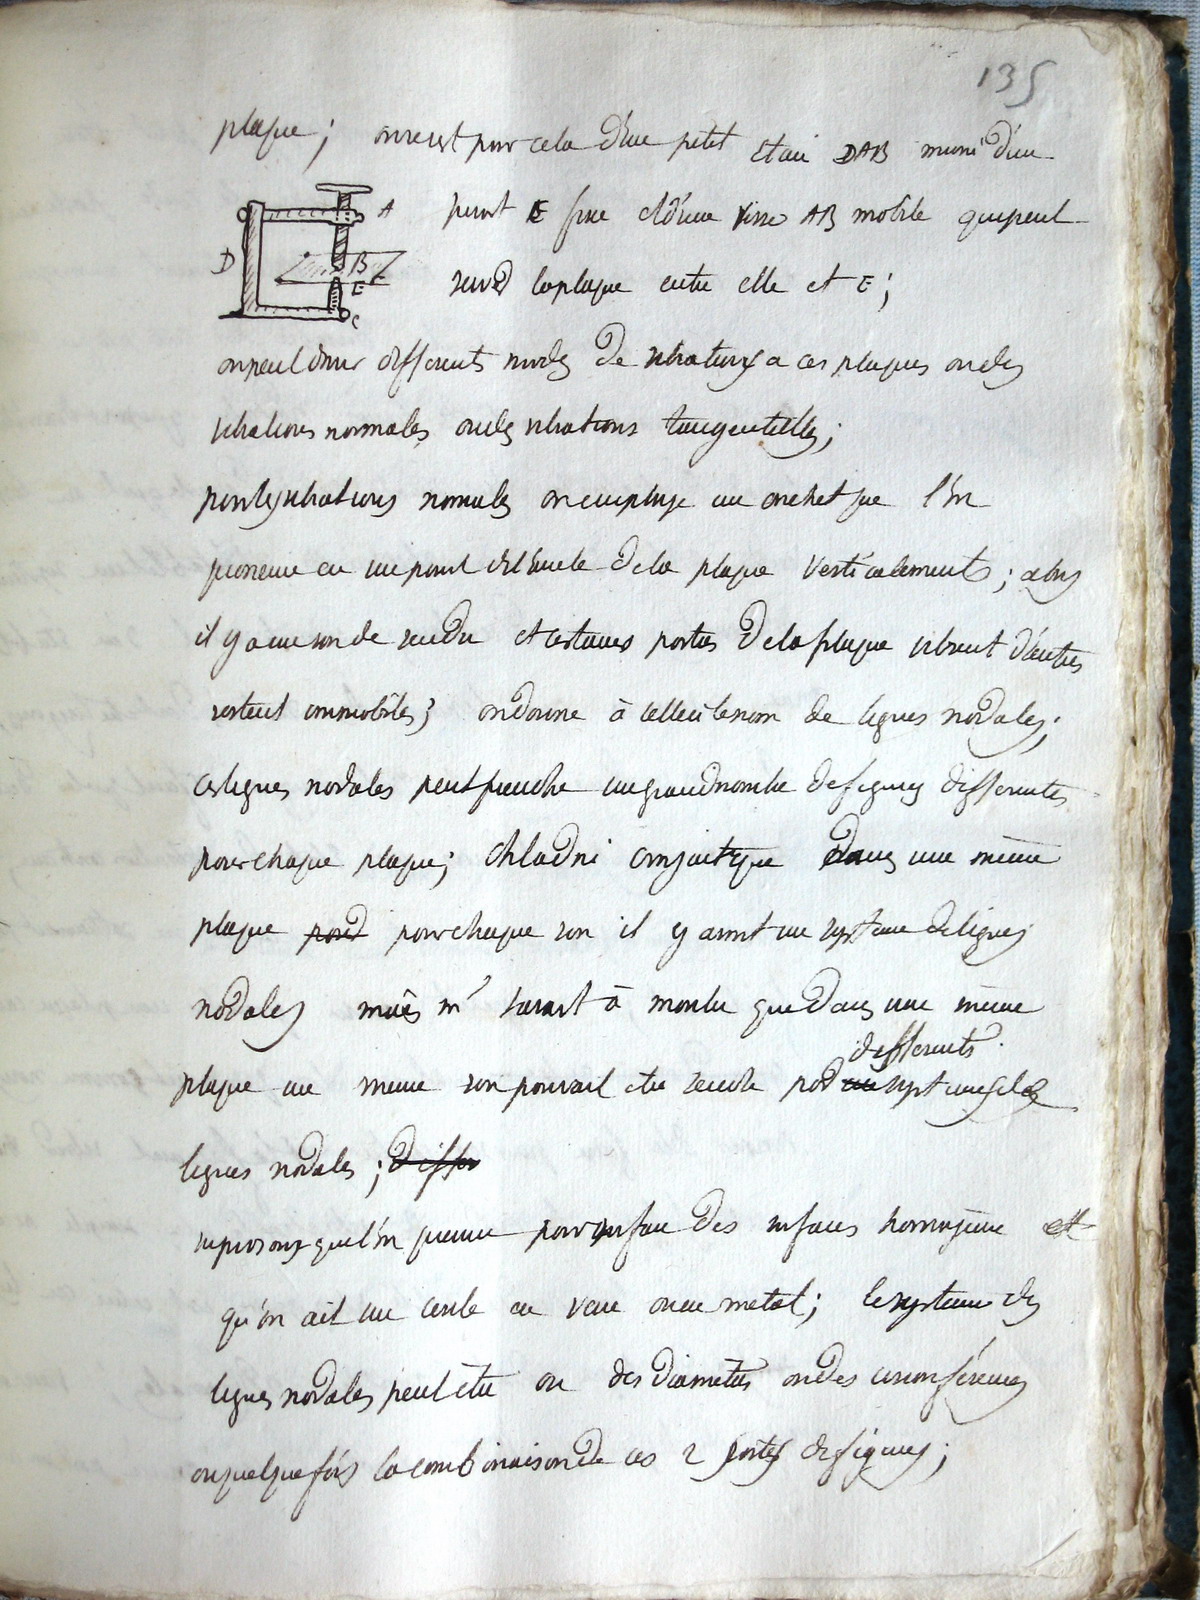 135
plaque; on se sert pour cela d'un petit étau DAB muni d'un
A
point E fixe et d'une visse AB mobile qui peut
D
B
E
C
serrer la plaque entre elle et E;
on peut donner différents modes de vibrations a ces plaques ou des
vibrations normales ou des vibrations tangentielles;
pour les vibrations normales on employe un archet que l'on
promene en un point de l'arrete de la plaque verticalement; alors
il y a un son de rendu et certaines parties de la plaque vibrent d'autres
restent immobiles; on donne à celles ci le nom de lignes nodales;
ces lignes nodales peut prendre un grand nombre de figures differentes
pour chaque plaque; chladni croyait que dans une même
plaque pour chaque son il y avait un systeme de lignes
nodales mais mr savart à montré que dans une même
differents
plaque un meme son pouvait etre rendu par un systemes de
lignes nodales; differ
supposons que l'on prenne pour surface des surfaces homogène et
qu'on ait un cercle en verre ou en metal; le systeme des
lignes nodales peut être ou des diamètres ou des circonférences
ou quelque fois la combinaison de ces 2 sortes de figures;